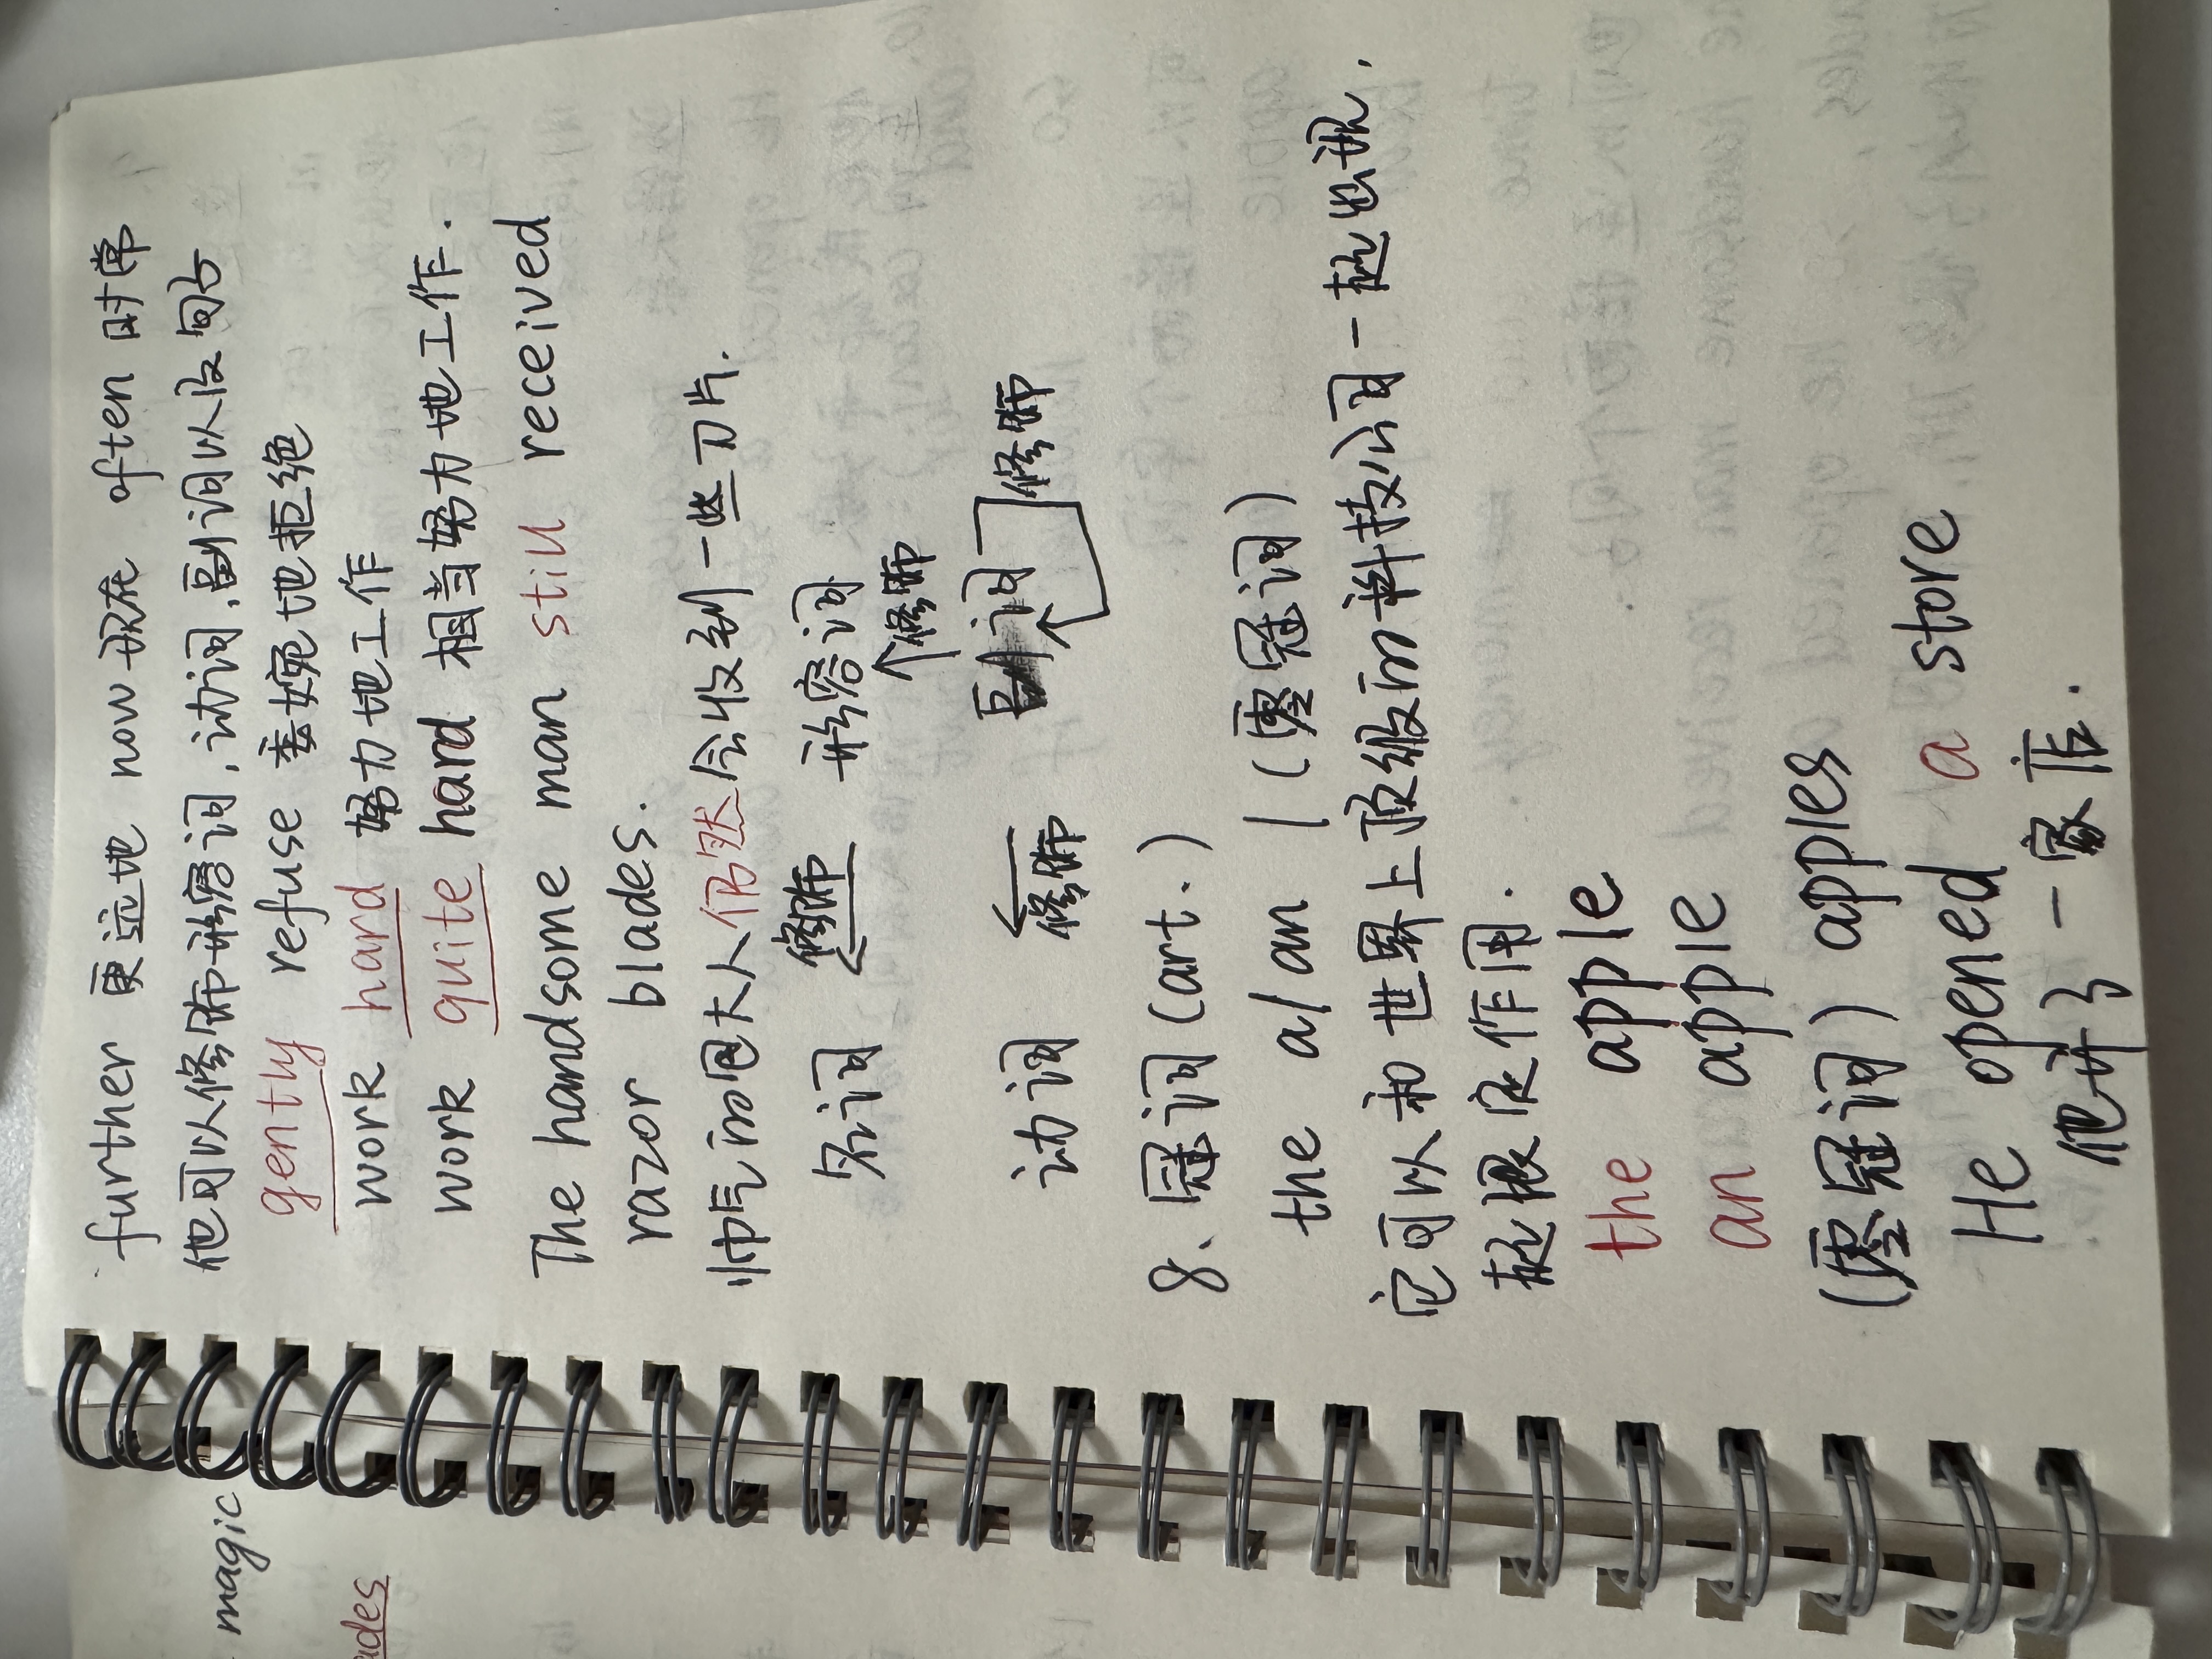 further 更远地 now 现在 often 时常
他可以修饰形容词,动词,副词以及句子
gently refuse 委婉地拒绝
work hard 努力地工作
work quite hard 相当努力地工作.
The handsome man still received
razor blades.
帅气的包大人仍然会收到一些刀片.
名词 修饰 ← 形容词
↑修饰
动词 ← 修饰 副词 修饰
8、冠词(art.)
the a/an /(零冠词)
它可以和世界上顶级的科技公司一起出现,
起限定作用.
the apple
an apple
(零冠词) apples
He opened a store
他开了一家店.
magic
ades